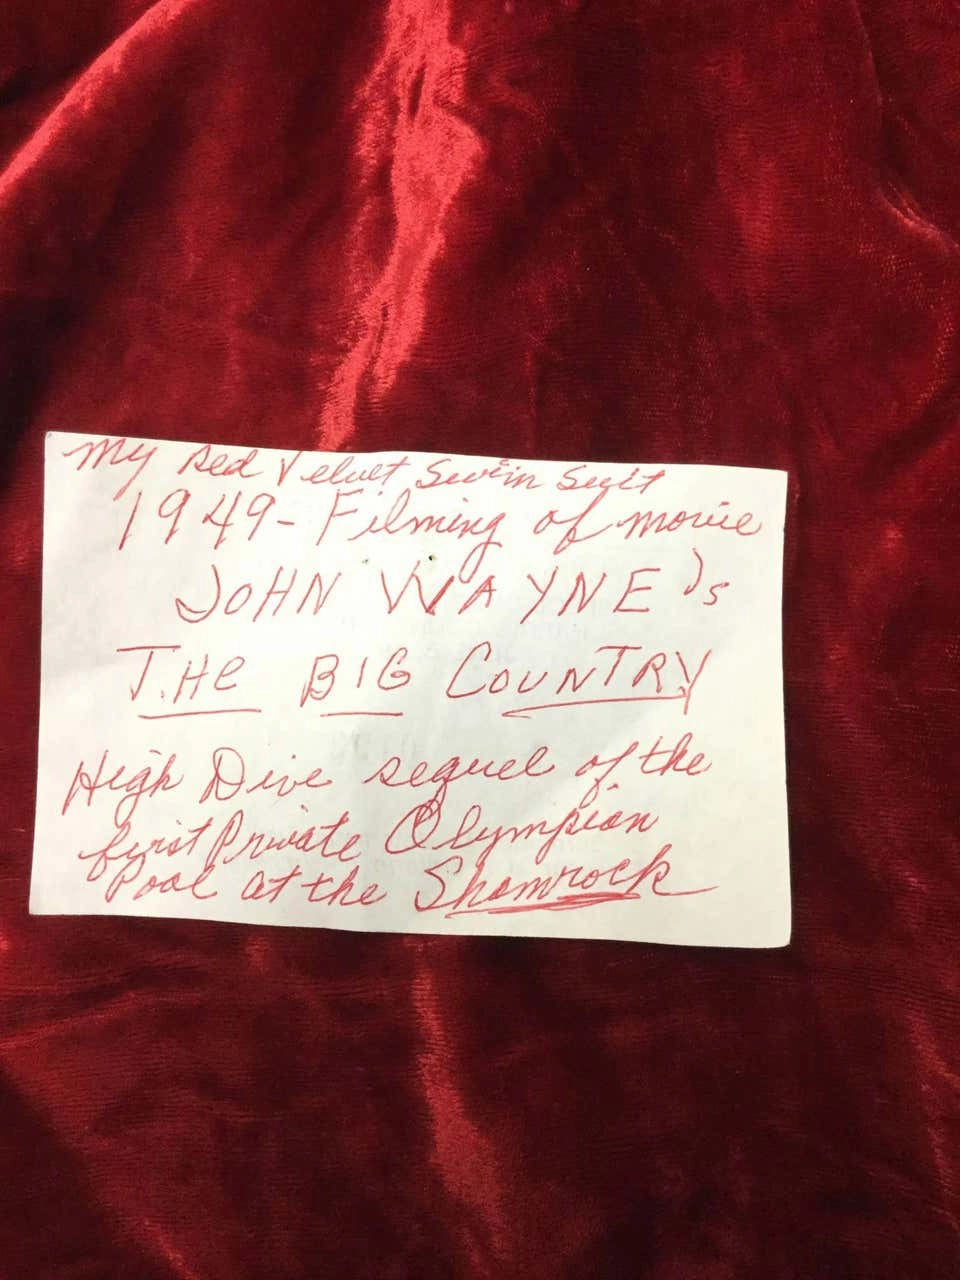 My red Velvet Swim Suit
1949 - Filming of movie
JOHN WAYNE's
THE BIG COUNTRY
High Dive sequel of the
first Private Olympian
Pool at the Shamrock